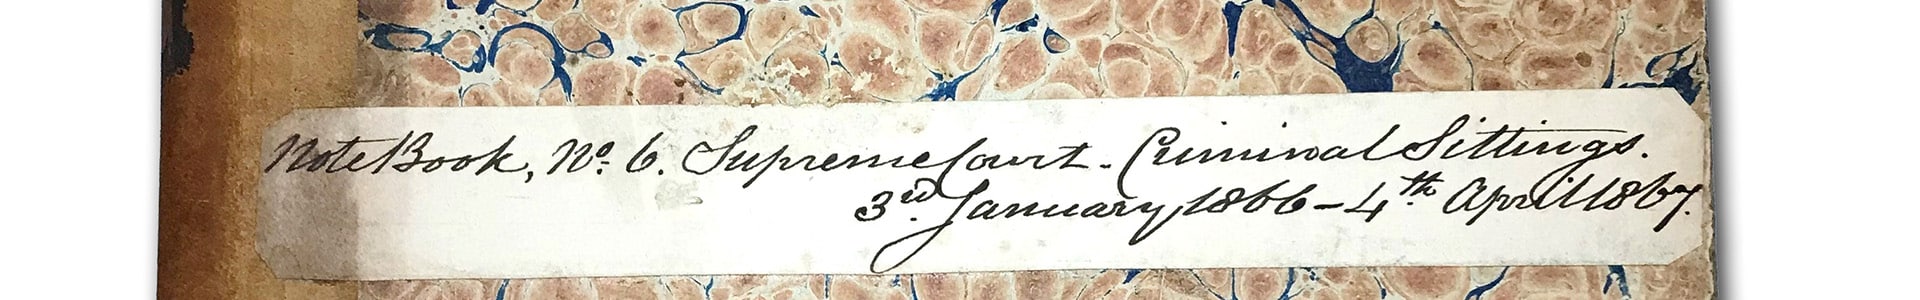 Note Book, No. 6. Supreme Court - Criminal Sittings.
3rd. January, 1866 - 4th April 1867.